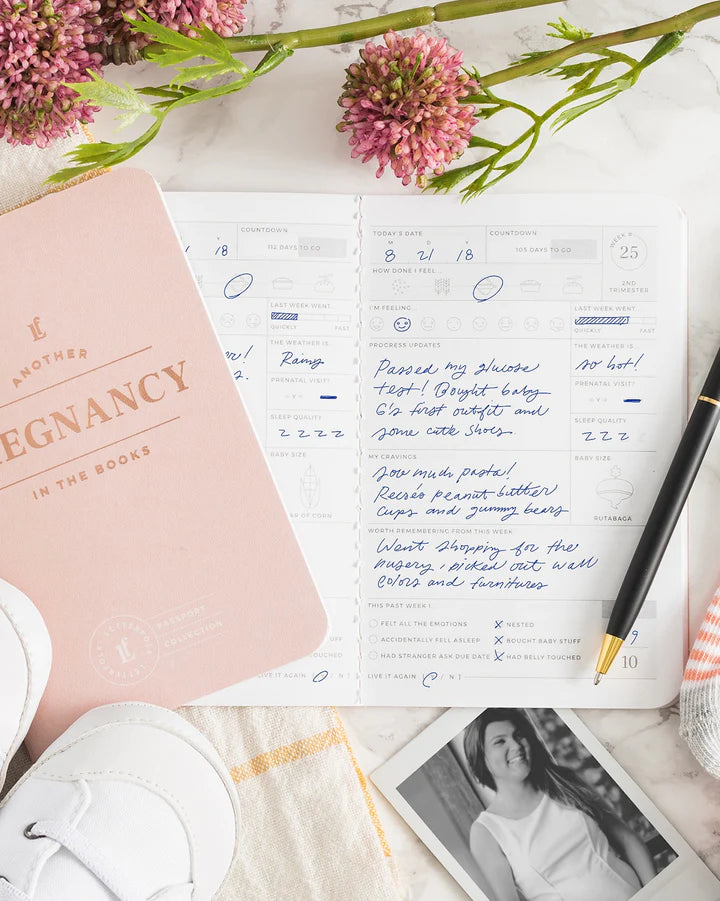 LE
ANOTHER
EGNANCY
IN THE BOOKS
LE
LETTERFOLK
PASSPORT
COLLECTION
Y
COUNTDOWN
18
112 DAYS TO GO
LAST WEEK WENT...
QUICKLY FAST
THE WEATHER IS...
Rainy
PRENATAL VISIT?
Y
SLEEP QUALITY
Z Z Z Z
BABY SIZE
R OF CORN
UFF
OUCHED
LIVE IT AGAIN
/ N ]
TODAY'S DATE
M D Y
8 21 18
COUNTDOWN
105 DAYS TO GO
WEEK #
25
2ND
TRIMESTER
HOW DONE I FEEL...
I'M FEELING...
LAST WEEK WENT...
QUICKLY FAST
PROGRESS UPDATES
Passed my glucose
test! Bought baby
G's first outfit and
some cute shoes.
THE WEATHER IS...
so hot!
PRENATAL VISIT?
Y
SLEEP QUALITY
Z Z Z
MY CRAVINGS
soo much pasta!
Recses peanut butter
cups and gummy bears
BABY SIZE
RUTABAGA
WORTH REMEMBERING FROM THIS WEEK
Went shopping for the
nusery, picked out wall
colors and furnitures
THIS PAST WEEK I...
FELT ALL THE EMOTIONS X NESTED
ACCIDENTALLY FELL ASLEEP X BOUGHT BABY STUFF
HAD STRANGER ASK DUE DATE X HAD BELLY TOUCHED
9
10
LIVE IT AGAIN
/ N ]